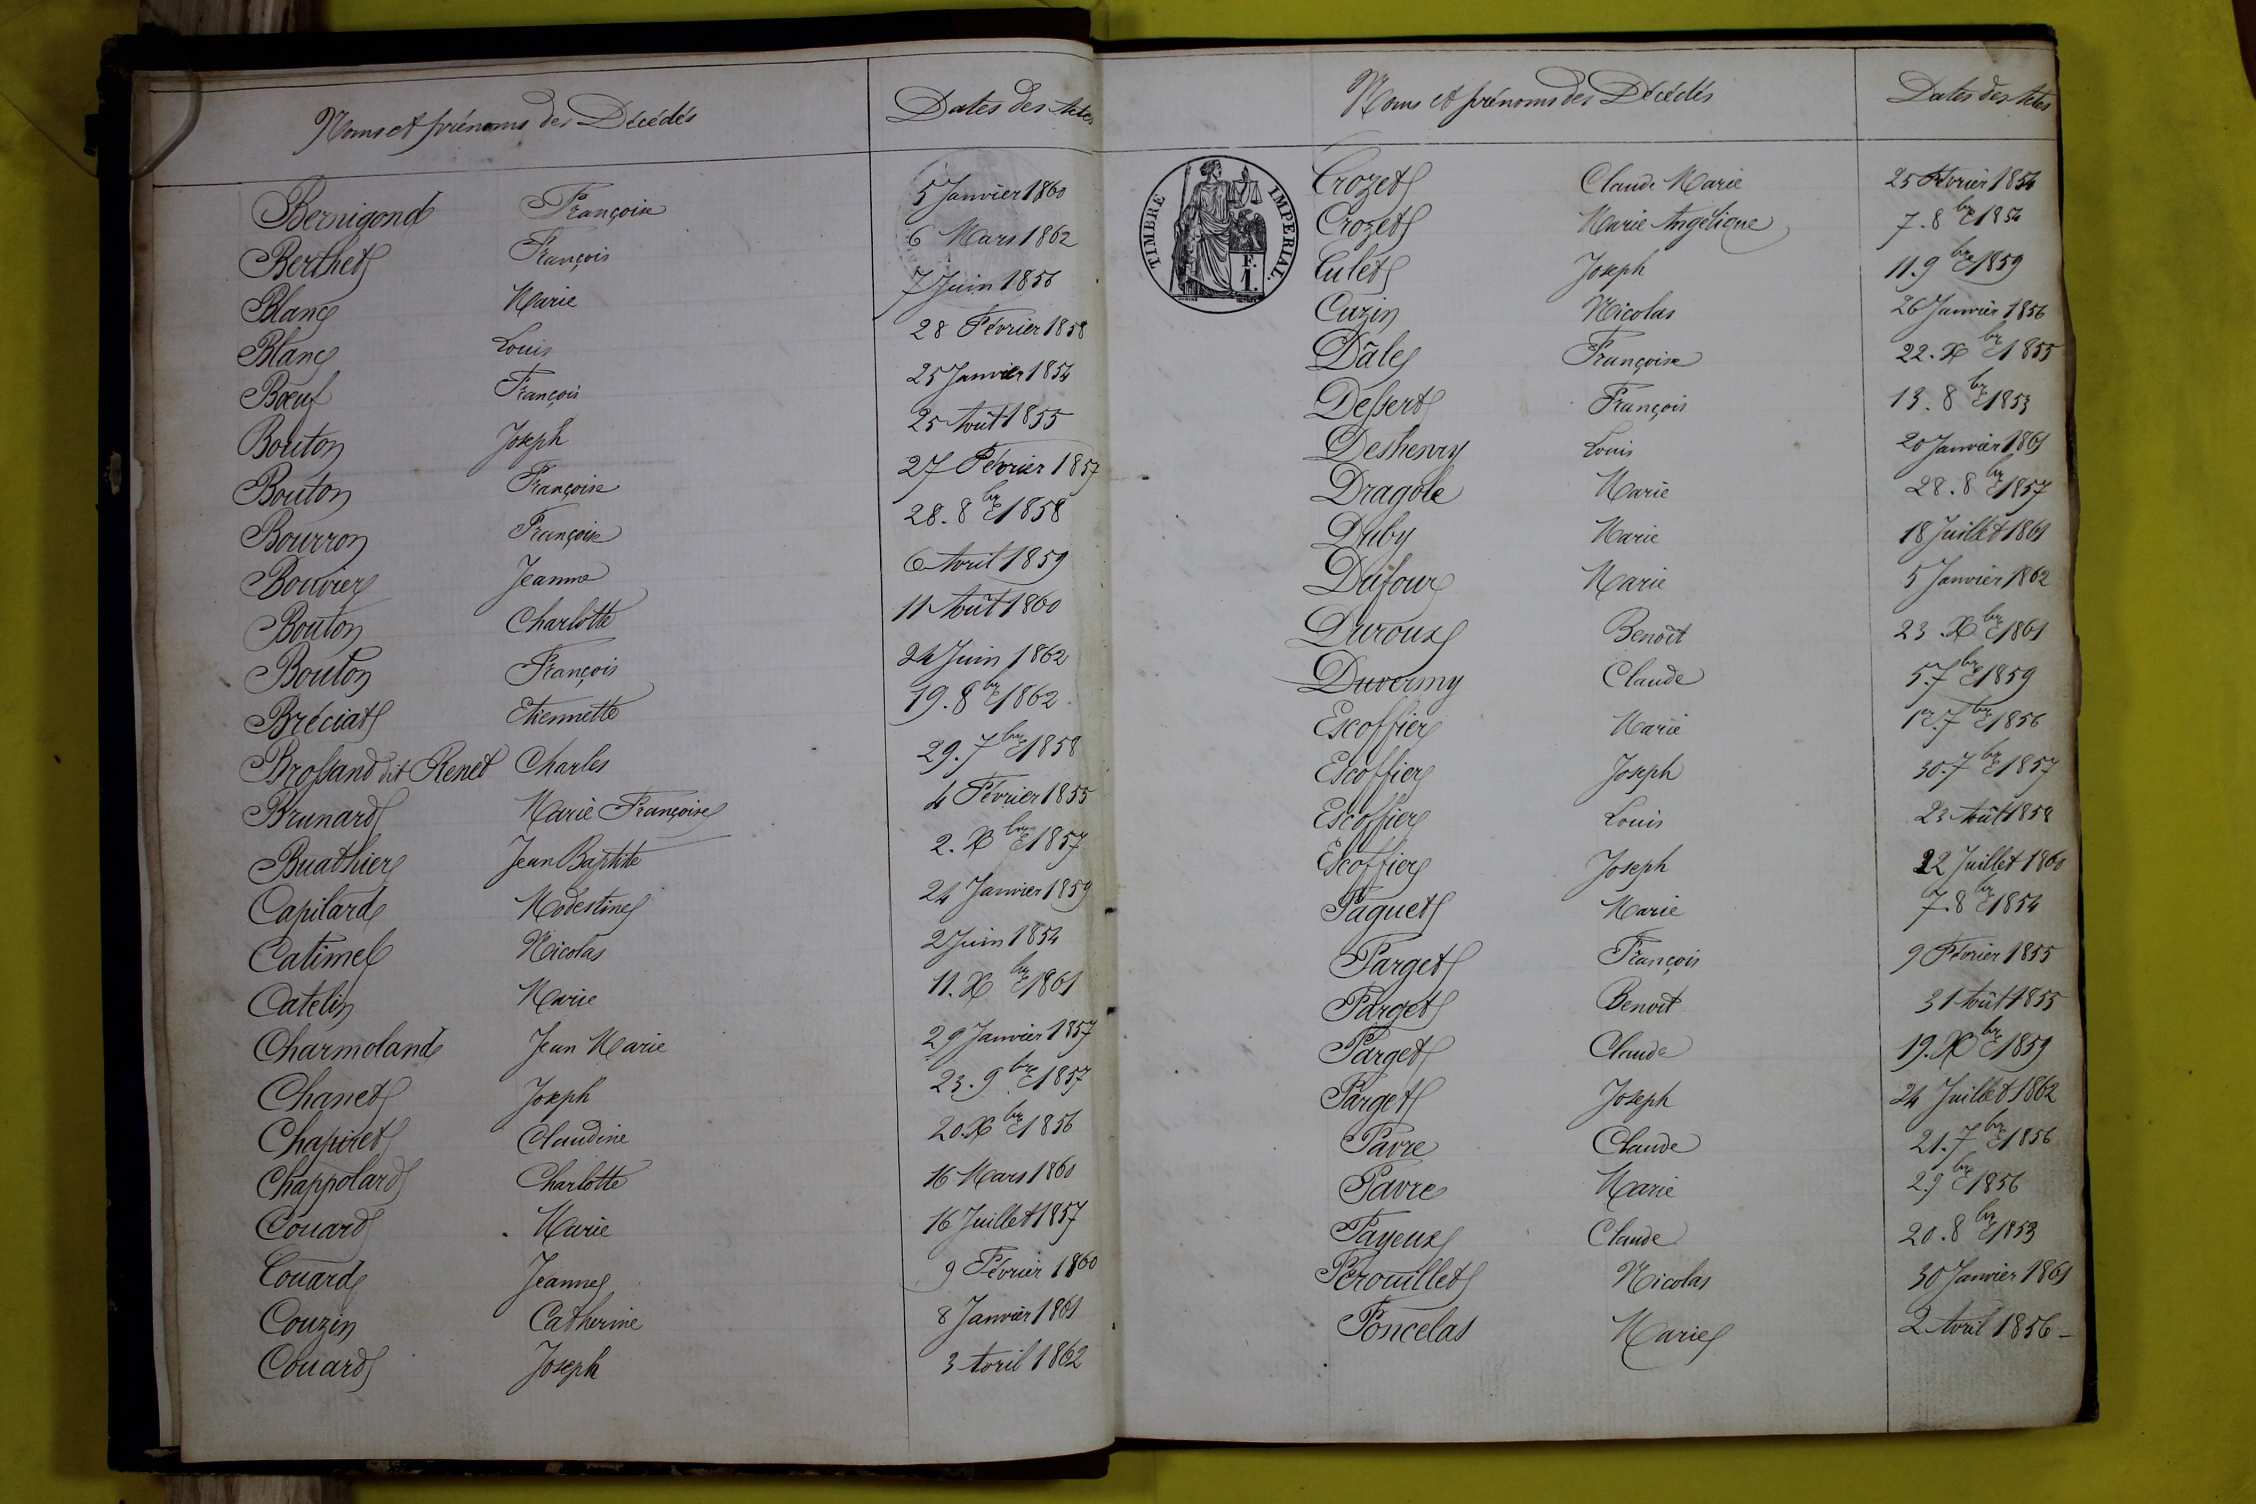 Noms et prénoms des Décédés Dates des Actes
Bernigond Françoise 5 Janvier 1860
Berthet François 6 Mars 1862
Blanc Marie 7 Juin 1856
Blanc Louis 28 Février 1858
Bœuf François 25 Janvier 1854
Bouton Joseph 25 Août 1855
Bouton Françoise 27 Février 1857
Bourron Françoise 28. 8bre 1858
Bouvier Jeanne 6 Avril 1859
Bouton Charlotte 11 Août 1860
Bouton François 24 Juin 1862
Bréciat Etiennette 19. 8bre 1862
Brossand dit Renet Charles 29. 7bre 1858
Brunard Marie Françoise 4 Février 1855
Buathier Jean Baptiste 2. Xbre 1857
Capilard Modestine 24 Janvier 1859
Catimel Nicolas 2 Juin 1854
Catelin Marie 11. Xbre 1861
Charmoland Jean Marie 29 Janvier 1857
Chanet Joseph 23. 9bre 1857
Chapiret Claudine 20. Xbre 1856
Chappolard Charlotte 16 Mars 1860
Couard Marie 16 Juillet 1857
Couard Jeanne 9 Février 1860
Couzin Catherine 8 Janvier 1861
Couard Joseph 3 Avril 1862
Noms et prénoms des Décédés Dates des Actes
TIMBRE IMPERIAL.
F.
1.
Crozet Claude Marie 25 Février 1854
Crozet Marie Angélique 7. 8bre 1854
Culet Joseph 11. 9bre 1859
Cuzin Nicolas 26 Janvier 1856
Dale Françoise 22. Xbre 1855
Dessert François 13. 8bre 1853
Deshenry Louis 20 Janvier 1861
Dragole Marie 28. 8bre 1857
Duby Marie 18 Juillet 1861
Dufour Marie 5 Janvier 1862
Duroux Benoît 23. Xbre 1861
Duvermy Claude 5. 7bre 1859
Escoffier Marie 1er. 7bre 1856
Escoffier Joseph 30. 7bre 1857
Escoffier Louis 23 Août 1858
Escoffier Joseph 22 Juillet 1860
Faguet Marie 7. 8bre 1854
Farget François 9 Février 1855
Farget Benoit 31 Août 1855
Farget Claude 19. Xbre 1859
Farget Joseph 24 Juillet 1862
Favre Claude 21. 7bre 1856
Favre Marie 2. 9bre 1856
Fayeux Claude 20. 8bre 1853
Ferouillet Nicolas 30 Janvier 1861
Foncelas Marie 2 Avril 1856 -